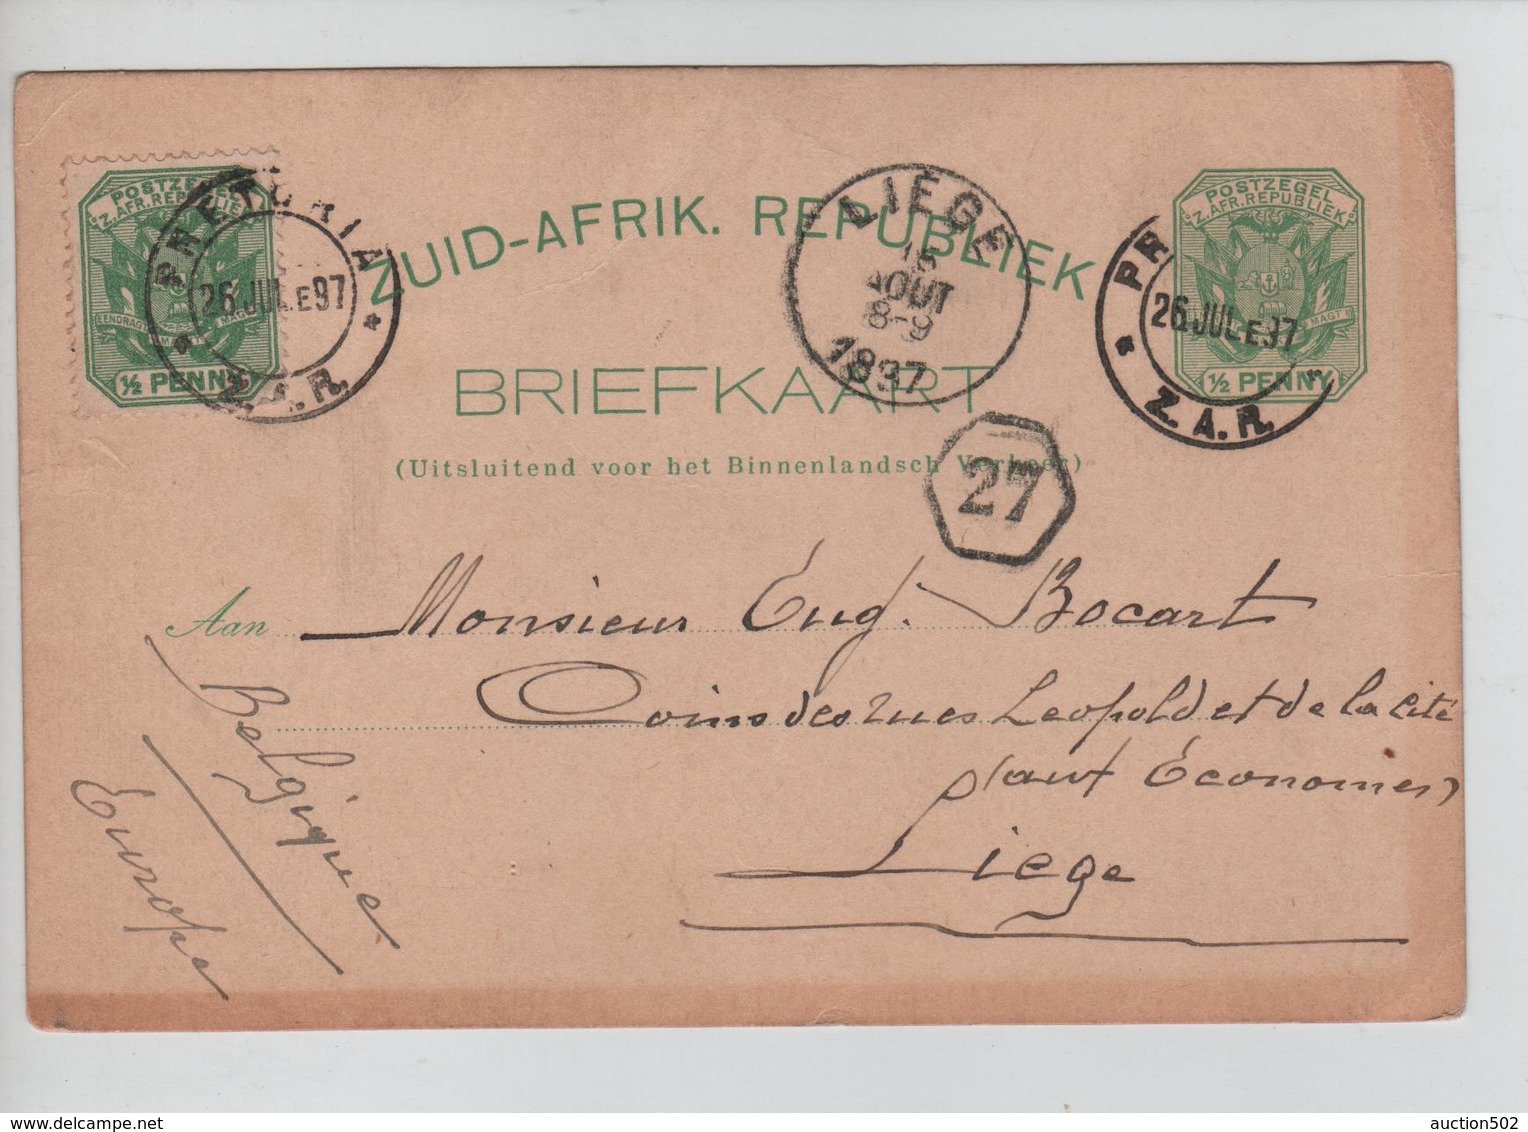 ZUID-AFRIK. REPUBLIEK
BRIEFKAART
(Uitsluitend voor het Binnenlandsch Verkeer)
POSTZEGEL
Z. AFR. REPUBLIEK
EENDRAGT MAAKT MAGT
½ PENNY
PRETORIA
26 JUL E 97
Z.A.R.
LIEGE
15
AOUT
8-9
1897
POSTZEGEL
Z. AFR. REPUBLIEK
MAGT
½ PENNY
PR
26 JUL E 97
Z.A.R.
27
Aan Monsieur Eug. Bocart
Coins des rues Leopold et de la Cité
(aux Économes)
Liege
Belgique
Europe
auction502